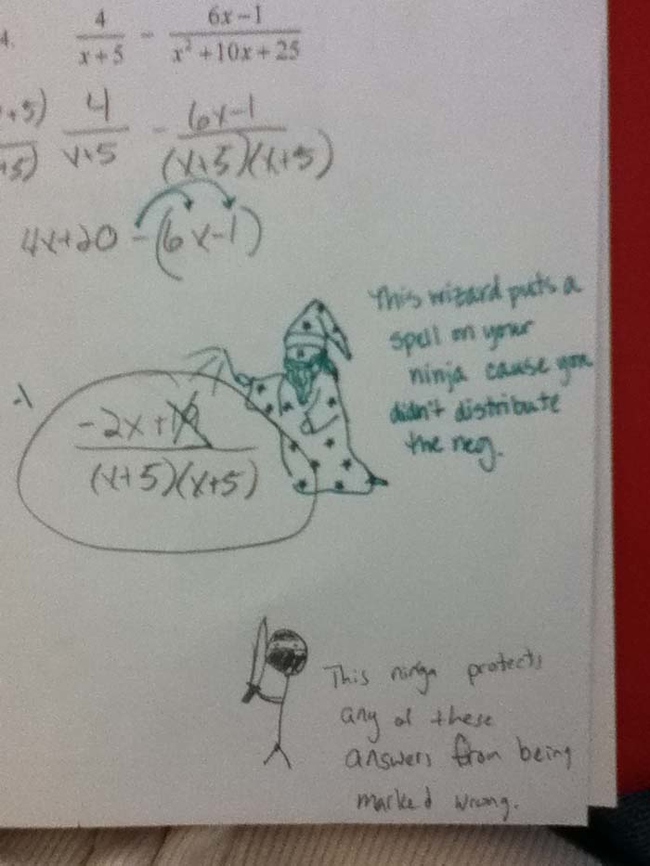 4. 4/(x+5) - (6x-1)/(x²+10x+25)
+5)/+5) 4/(x+5) - (6x-1)/((x+5)(x+5))
4x+20 -(6x-1)
This wizard puts a
spell on your
ninja cause you
didn't distribute
the neg.
-1
(-2x+19)/((x+5)(x+5))
This ninja protects
any of these
answers from being
marked wrong.